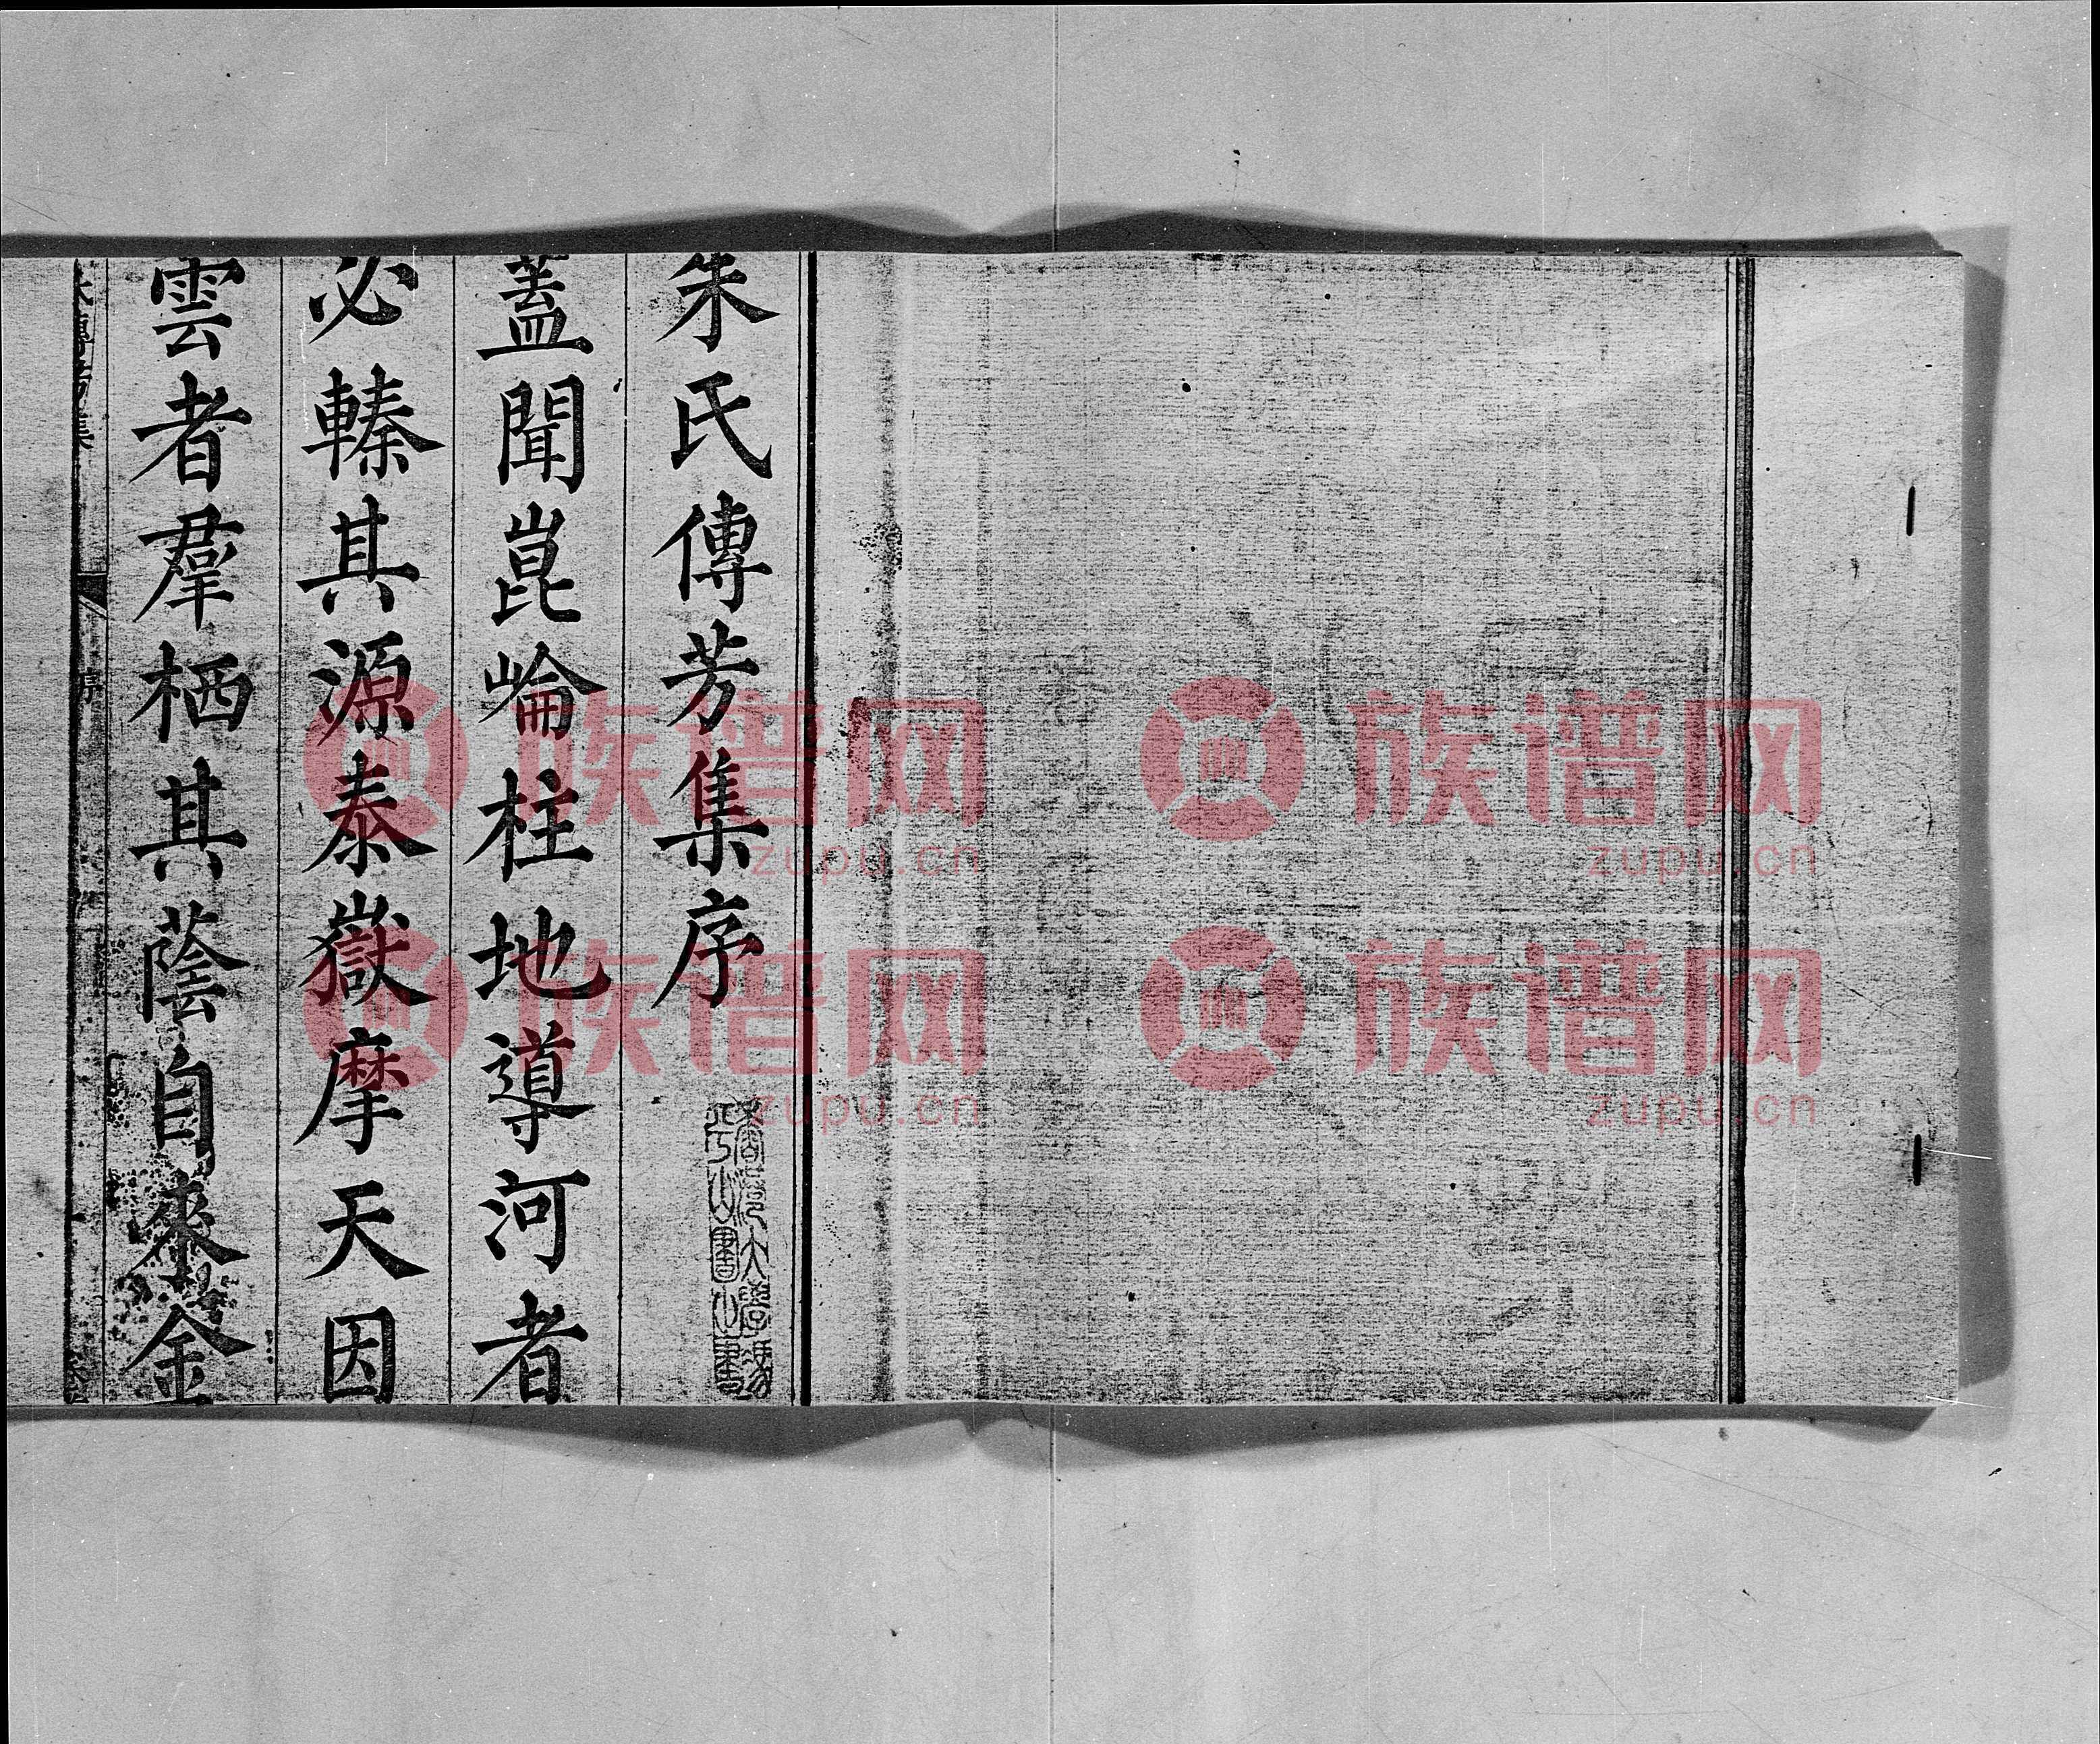 朱氏傳芳集序
蓋聞崑崙柱地導河者
必轃其源泰嶽摩天因
雲者羣栖其蔭自來金
序
族谱网
zupu.cn
族谱网
zupu.cn
族谱网
zupu.cn
族谱网
zupu.cn